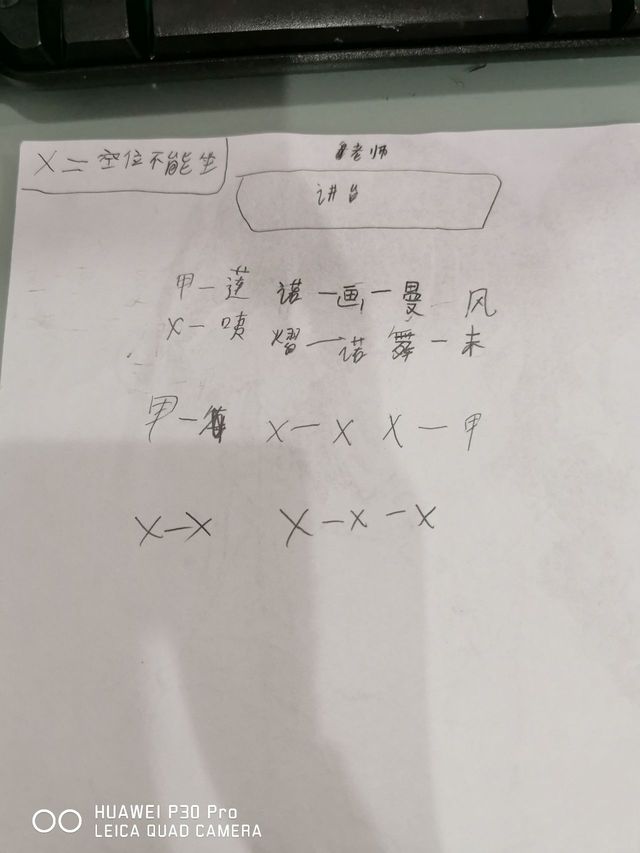 X = 空位不能坐
老师
讲台
甲一莲 诺一画一曼 风
X一咦 熠一诺 舞一未
甲一 X一X X一甲
X一X X一X一X
HUAWEI P30 Pro
LEICA QUAD CAMERA